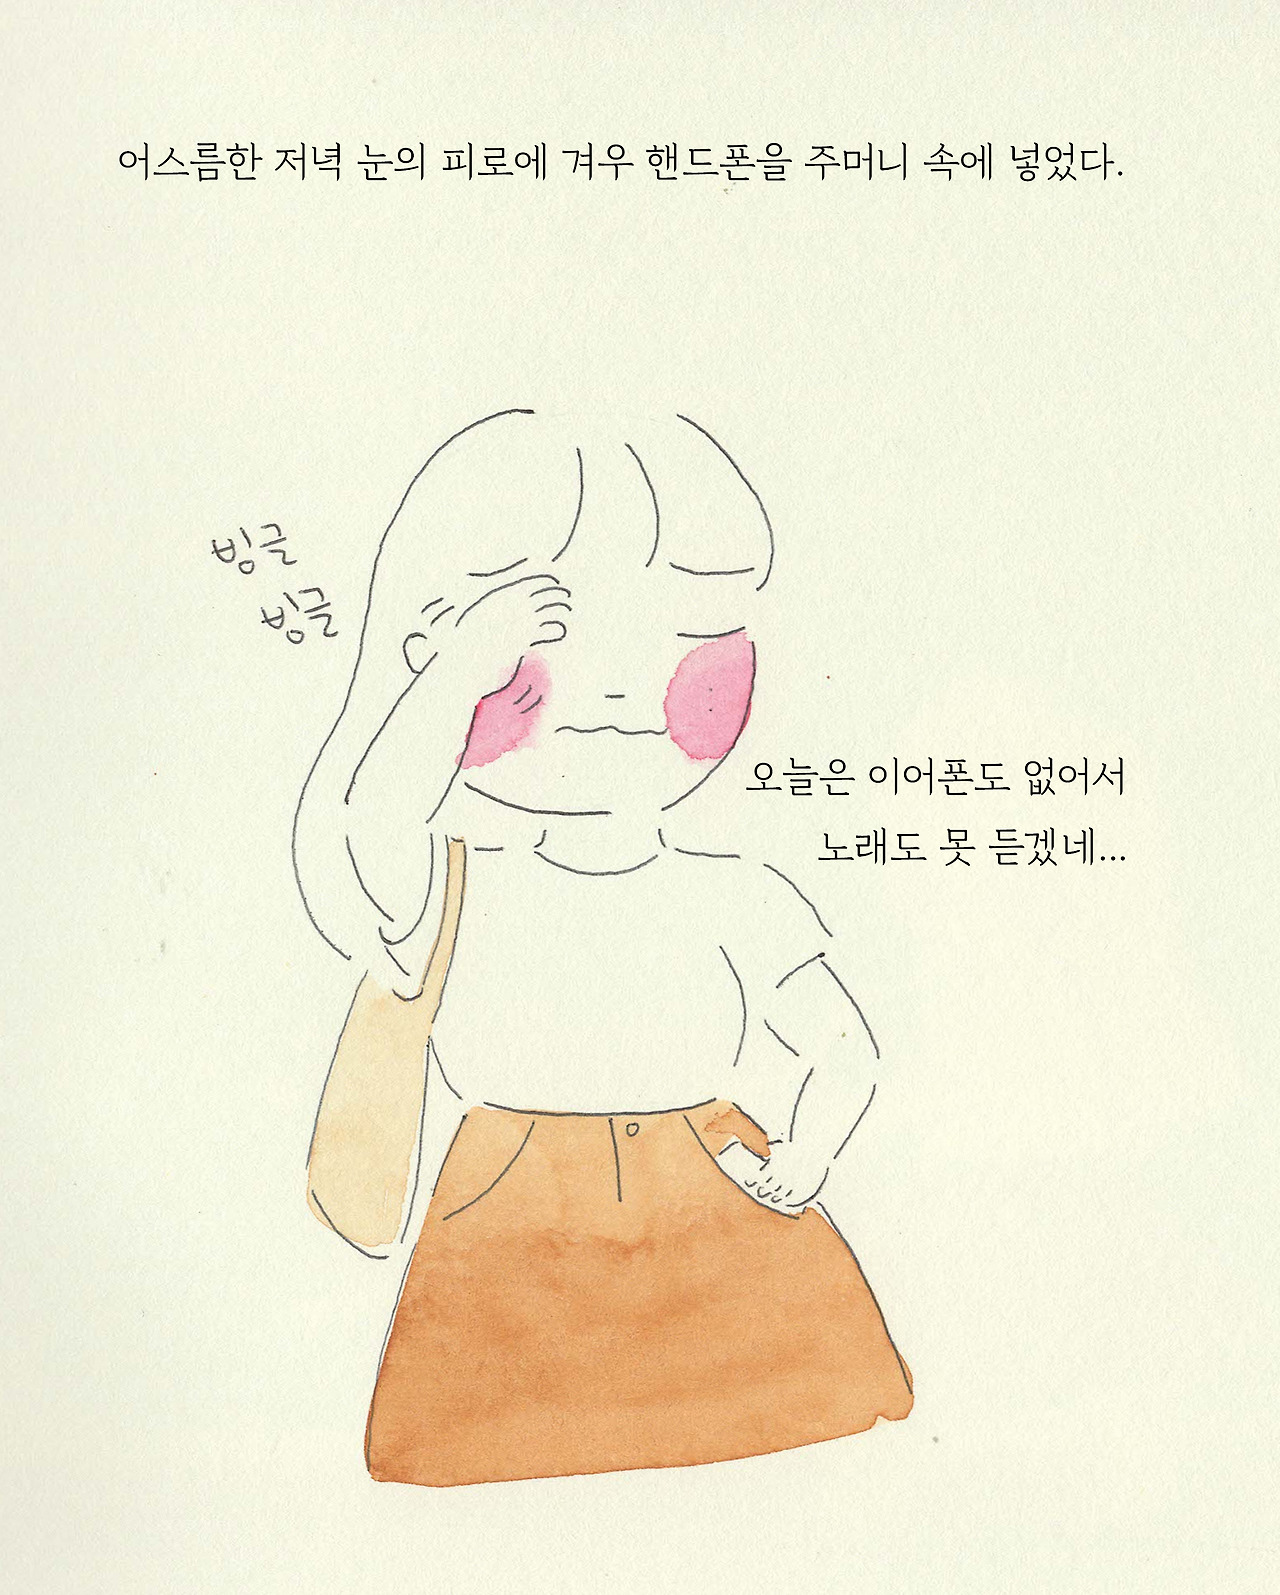 어스름한 저녁 눈의 피로에 겨우 핸드폰을 주머니 속에 넣었다.
빙글
빙글
오늘은 이어폰도 없어서
노래도 못 듣겠네...